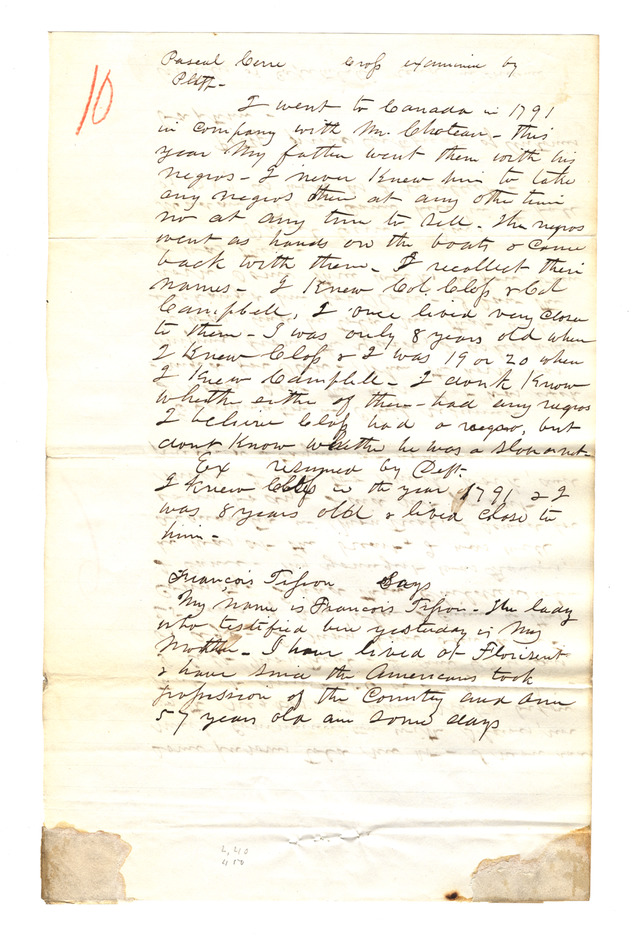 10
Pascal Cerre Cross examined by
Pltff-
I went to Canada in 1791
in company with Mr. Choteau - This
year My father went there with his
negros - I never Knew him to take
any negros there at any other time
nor at any time to sell. The negros
went as hands on the boats & came
back with them - I recollect their
names - I Knew Col Closs & Col
Campbell, I once lived very close
to them - I was only 8 years old when
I Knew Closs & I was 19 or 20 when
I Knew Campbell - I dont Know
whether either of them had any negros
I believe Closs had a negro, but
dont Know whether he was a slave or not.
Ex resumed by Deft.
I knew Closs in the year 1791 & I
was 8 years old & lived close to
him -
François Tisson Says
My name is Francois Tisson - The lady
who testified here yesterday is My
Mother - I have lived at Florisent
& have since the Americans took
possession of the Country and am
57 years old and some days